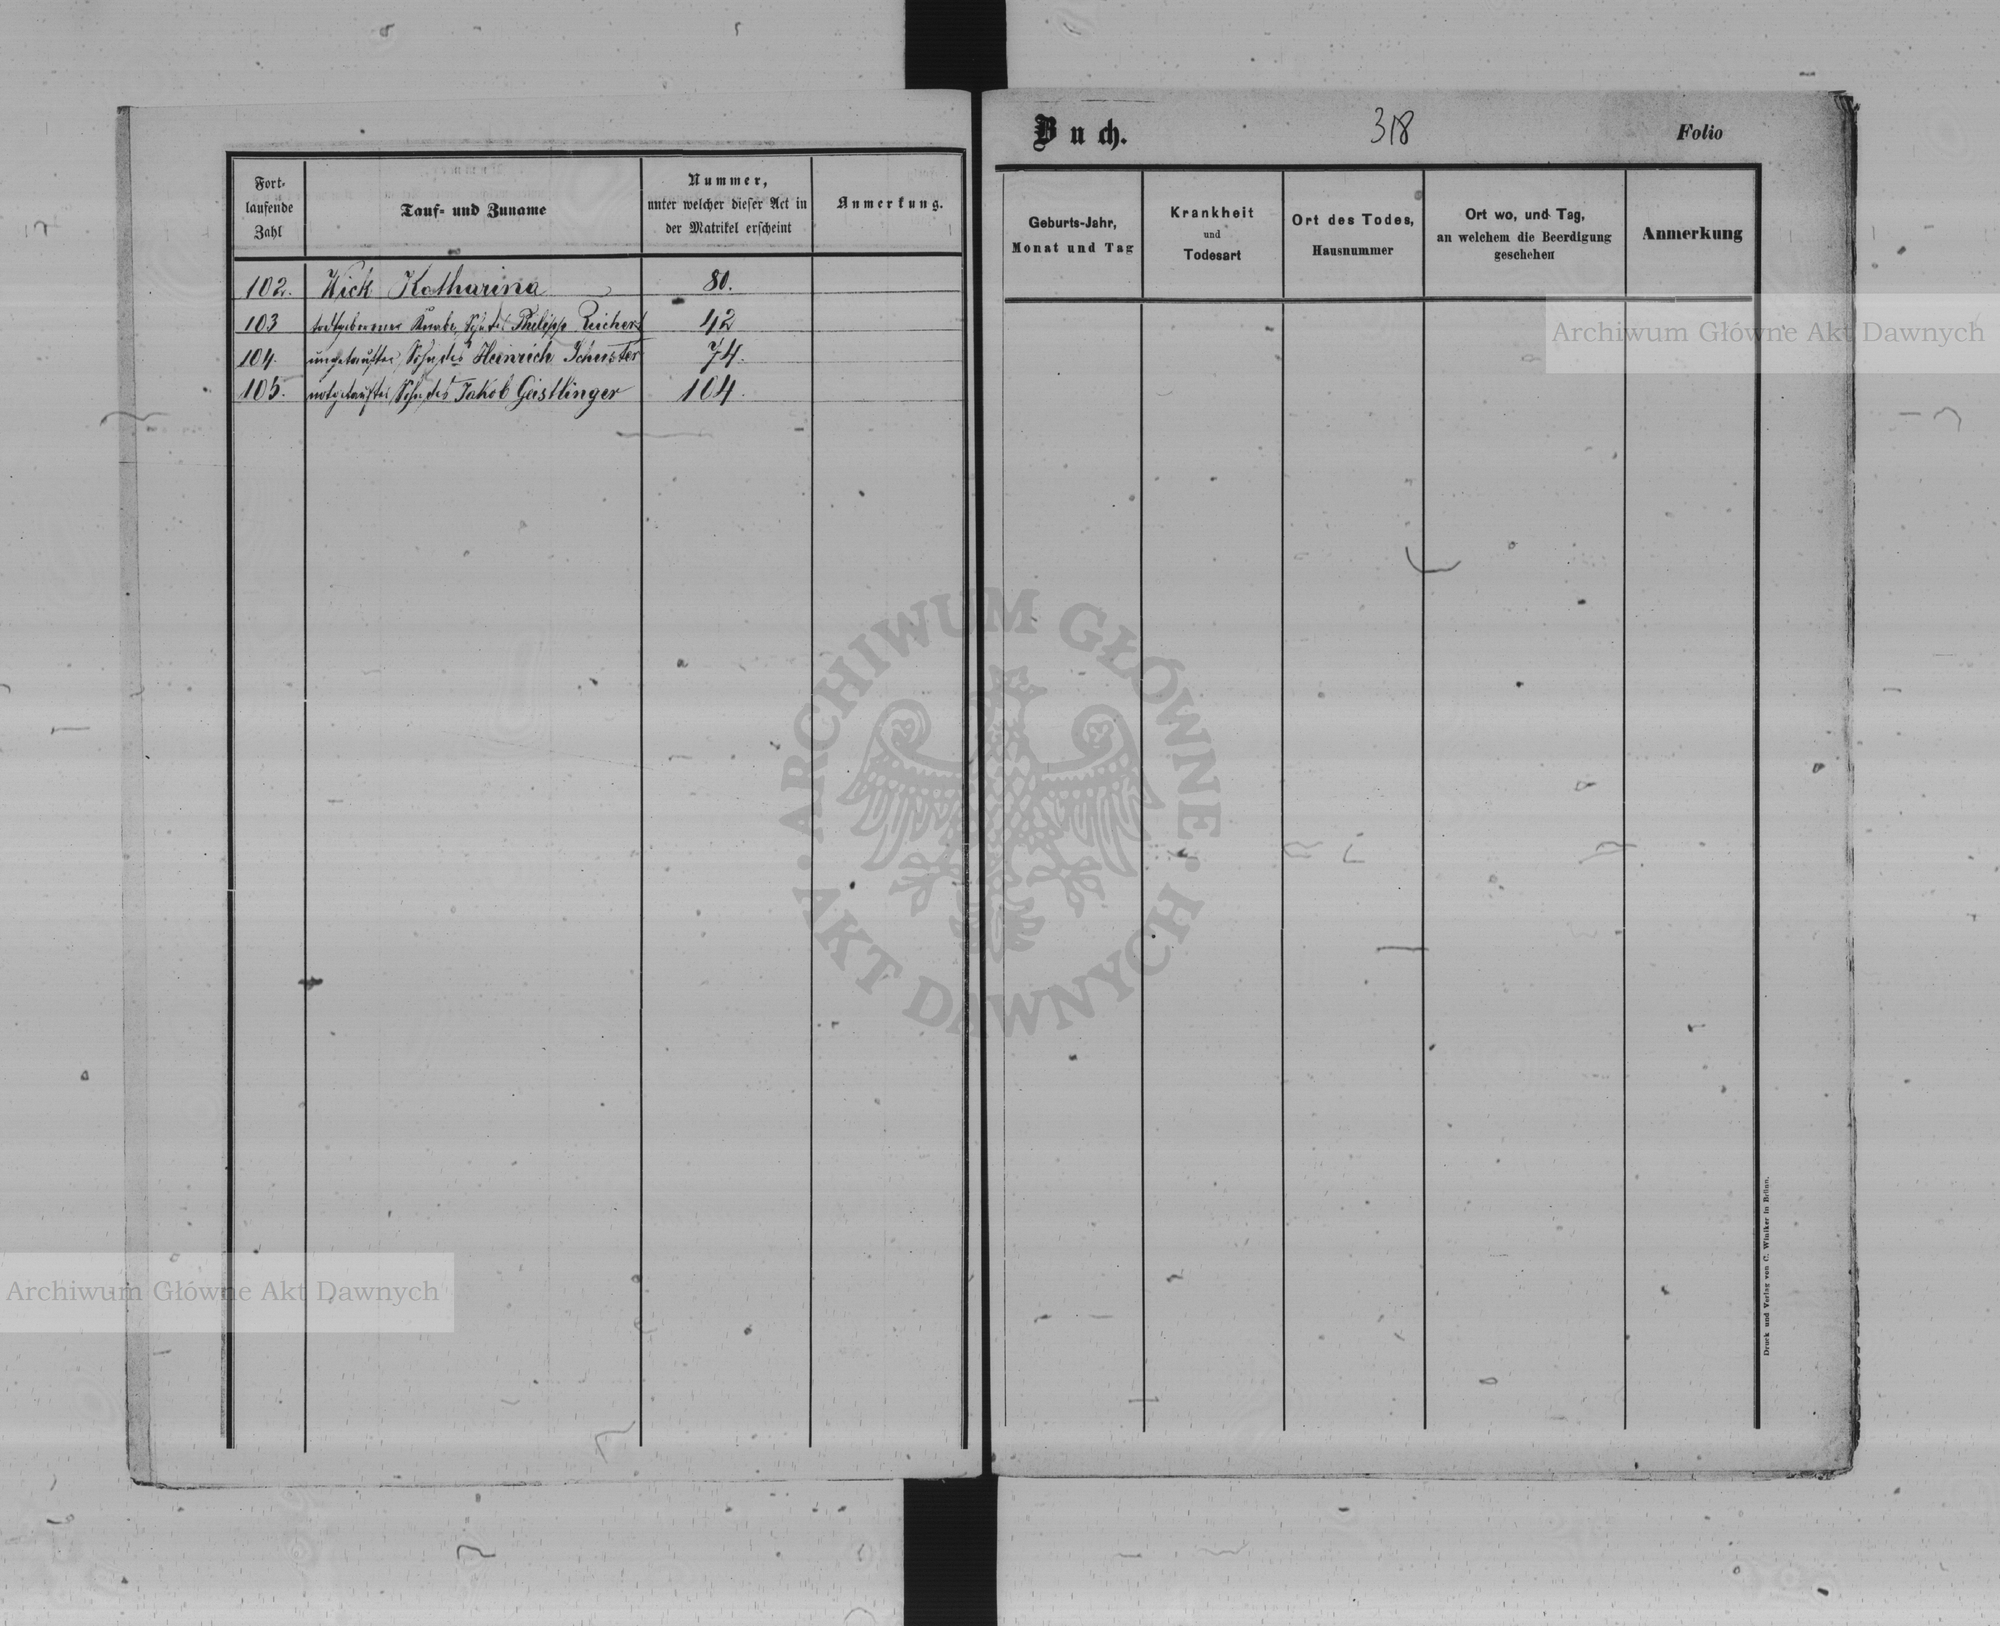 Fort-
laufende
Zahl
Tauf- und Zuname
Nummer,
unter welcher dieser Act in
der Matrikel erscheint
Anmerkung.
102. Wick Katharina 80.
103 todtgeborener Knabe, Sohn des Philipp Reichert 42
104. ungetaufter Sohn des Heinrich Schuster 74.
105. notgetaufter Sohn des Jakob Geistlinger 104.
Buch.
318
Folio
Geburts-Jahr,
Monat und Tag
Krankheit
und
Todesart
Ort des Todes,
Hausnummer
Ort wo, und Tag,
an welchem die Beerdigung
geschehen
Anmerkung
Druck und Verlag von C. Winiker in Brünn.
Archiwum Główne Akt Dawnych
ARCHIWUM GŁÓWNE · AKT DAWNYCH ·
Archiwum Główne Akt Dawnych